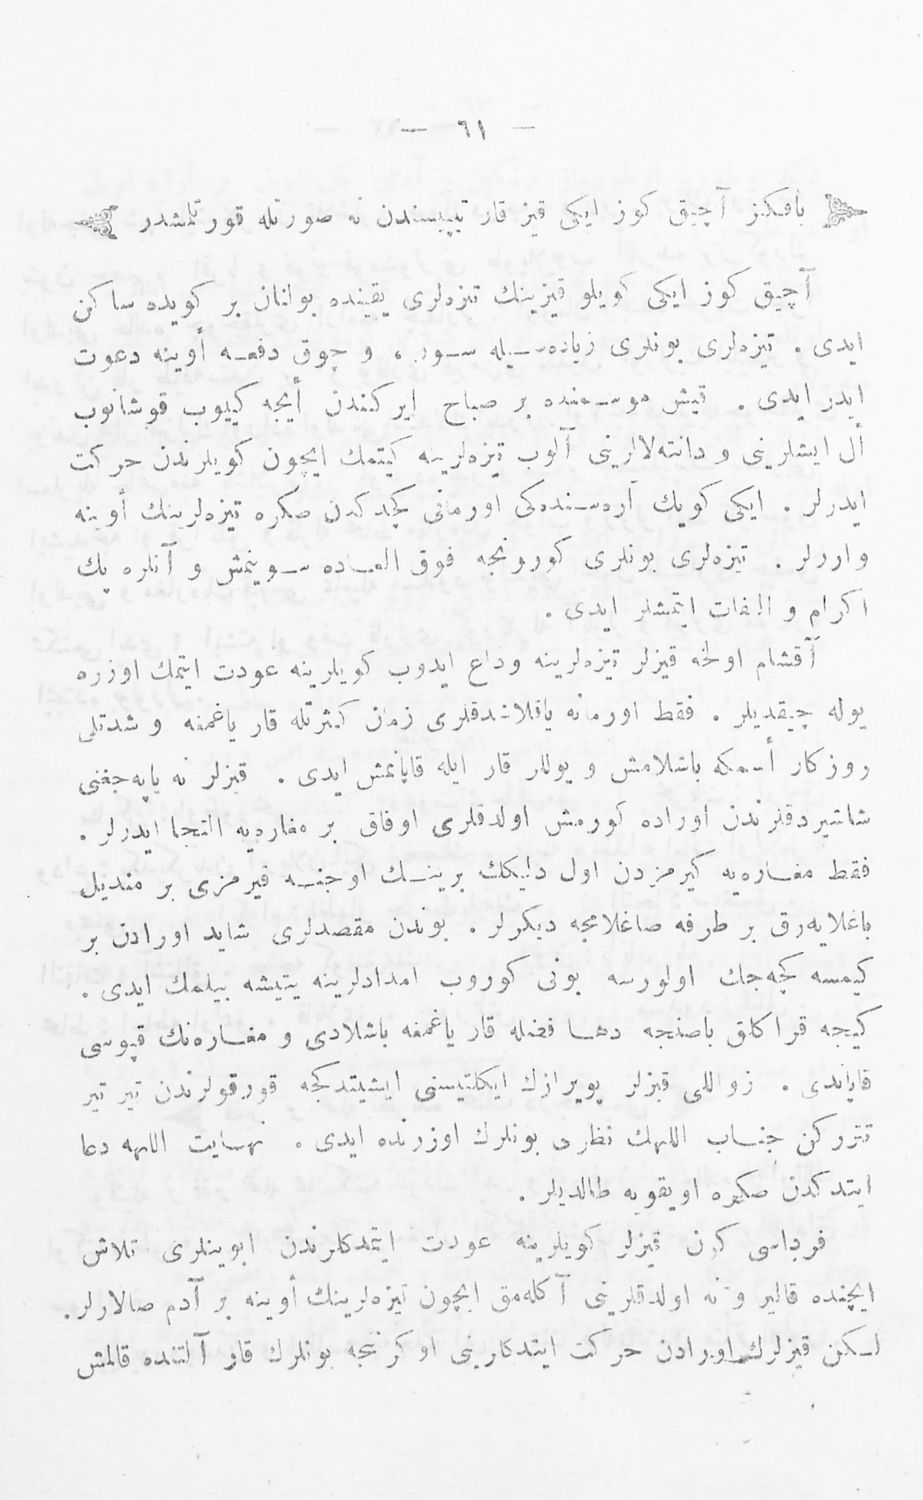 — ٦١ —
باقكز آچيق كوز ايكى قيز قار تيپيسندن نه صورتله قورتلمشدر
آچيق كوز ايكى كويلو قيزينك تيزه‌لرى يقينده بولنان بر كويده ساكن
ايدى . تيزه‌لرى بونلرى زياده‌سيله سور ، و چوق دفعه أوينه دعوت
ايدر ايدى . قيش موسمنده بر صباح ايركندن أيجه كيوب قوشانوب
أل ايشلرينى و دانته‌لالرينى آلوب تيزه‌لرينه كيتمك ايچون كويلرندن حركت
ايدرلر . ايكى كويك آره‌سنده‌كى اورمانى كچدكدن صكره تيزه‌لرينك أوينه
واررلر . تيزه‌لرى بونلرى كورونجه فوق العاده سوينمش و آنلره پك
اكرام و التفات ايتمشلر ايدى .
آقشام اولنجه قيزلر تيزه‌لرينه وداع ايدوب كويلرينه عودت ايتمك اوزره
يوله چيقديلر . فقط اورمانه ياقلاشدقلرى زمان كثرتله قار ياغمغه و شدتلى
روزكار أسمكه باشلامش و يوللر قار ايله قاپانمش ايدى . قيزلر نه ياپه‌جغنى
شاشيردقلرندن اوراده كورمش اولدقلرى اوفاق بر مغاره‌يه التجا ايدرلر .
فقط مغاره‌يه كيرمزدن اول دليكلك برينك اوجنه قيرمزى بر منديل
باغلايه‌رق بر طرفه صاغلامجه ديكرلر . بوندن مقصدلرى شايد اورادن بر
كيمسه كچه‌جك اولورسه بونى كوروب امدادلرينه يتيشه بيلمك ايدى .
كيجه قراكلق باصنجه دها فضله قار ياغمغه باشلادى و مغاره‌نك قپوسى
قاپاندى . زواللى قيزلر پويرازك ايكلتيسنى ايشيتدكجه قورقولرندن تير تير
تتررکن جناب اللهك نظرى بونلرك اوزرنده ايدى . نهايت اللهه دعا
ايتدكدن صكره اويقويه طالديلر .
فرداسى كون قيزلر كويلرينه عودت ايتمدكلرندن ابوينلرى تلاش
ايچنده قالير و نه اولدقلرينى آكله‌مق ايچون تيزه‌لرينك أوينه بر آدم صالارلر.
لكن قيزلرك اورادن حركت ايتدكلرينى اوكرنجه بونلرك قار آلتنده قالمش